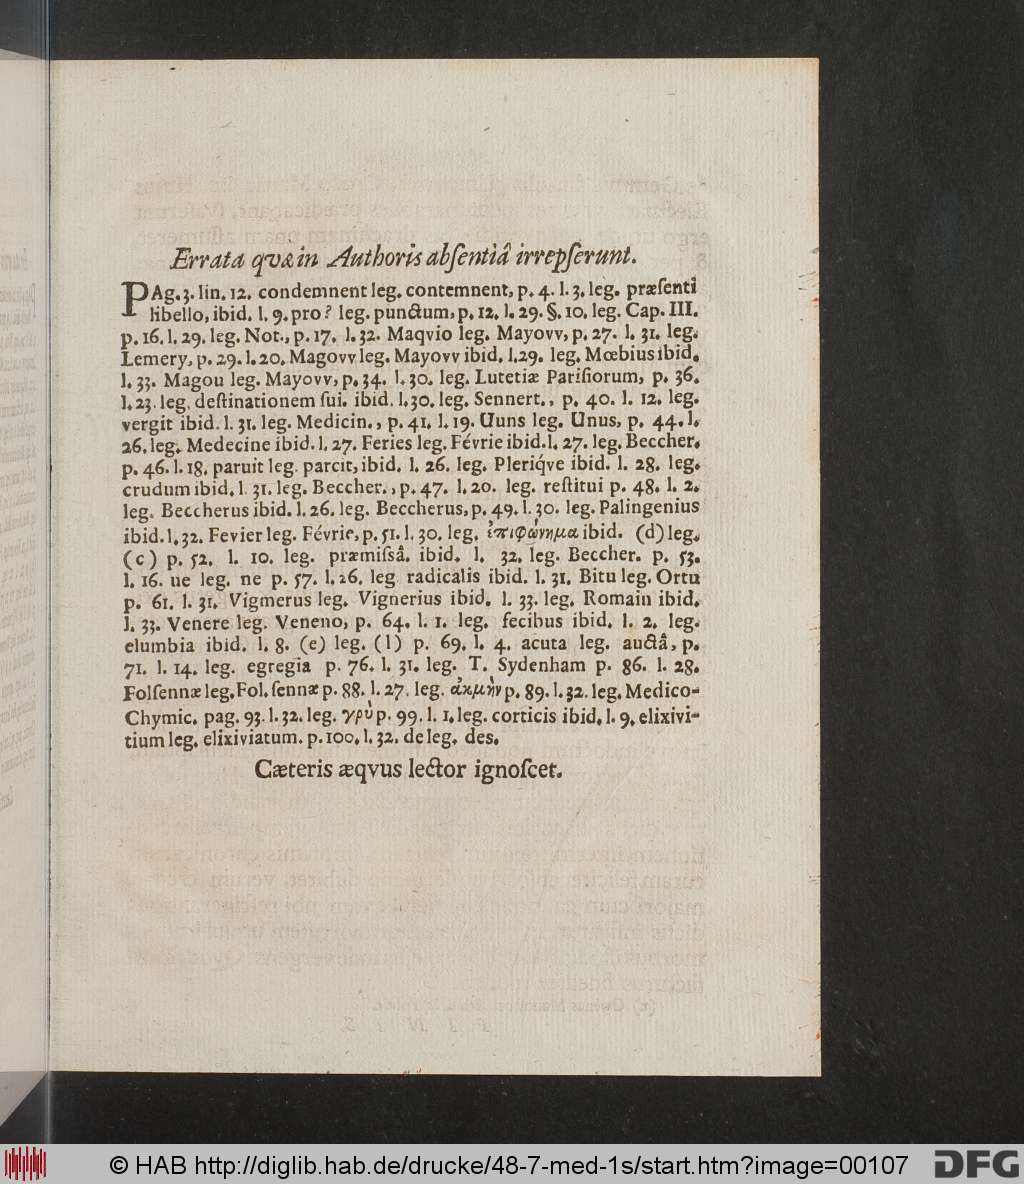 Errata qvæ in Authoris absentiâ irrepserunt.
PAg. 3. lin. 12. condemnent leg. contemnent, p. 4. l. 3. leg. præsenti
libello, ibid. l. 9. pro ? leg. punctum, p. 12. l. 29. §. 10. leg. Cap. III.
p. 16. l. 29. leg. Not., p. 17. l. 32. Maqvio leg. Mayovv, p. 27. l. 31. leg.
Lemery, p. 29. l. 20. Magovv leg. Mayovv ibid. l. 29. leg. Mœbius ibid.
l. 33. Magou leg. Mayovv, p. 34. l. 30. leg. Lutetiæ Parisiorum, p. 36.
l. 23. leg. destinationem sui. ibid. l. 30. leg. Sennert., p. 40. l. 12. leg.
vergit ibid. l. 31. leg. Medicin., p. 41. l. 19. Uuns leg. Unus, p. 44. l.
26. leg. Medecine ibid. l. 27. Feries leg. Févrie ibid. l. 27. leg. Beccher.
p. 46. l. 18. paruit leg. parcit, ibid. l. 26. leg. Pleriq́ve ibid. l. 28. leg.
crudum ibid. l. 31. leg. Beccher., p. 47. l. 20. leg. restitui p. 48. l. 2.
leg. Beccherus ibid. l. 26. leg. Beccherus, p. 49. l. 30. leg. Palingenius
ibid. l. 32. Fevier leg. Févrie, p. 51. l. 30. leg. ἐπιφώνημα ibid. (d) leg.
(c) p. 52. l. 10. leg. præmissâ. ibid. l. 32. leg. Beccher. p. 53.
l. 16. ue leg. ne p. 57. l. 26. leg radicalis ibid. l. 31. Bitu leg. Ortu
p. 61. l. 31. Vigmerus leg. Vignerius ibid. l. 33. leg. Romain ibid.
l. 33. Venere leg. Veneno, p. 64. l. 1. leg. fecibus ibid. l. 2. leg.
elumbia ibid. l. 8. (e) leg. (l) p. 69. l. 4. acuta leg. auctâ, p.
71. l. 14. leg. egregia p. 76. l. 31. leg. T. Sydenham p. 86. l. 28.
Folsennæ leg. Fol. sennæ p. 88. l. 27. leg. ἀκμὴν p. 89. l. 32. leg. Medico-
Chymic. pag. 93. l. 32. leg. γρὺ p. 99. l. 1. leg. corticis ibid. l. 9. elixivi-
tium leg. elixiviatum. p. 100. l. 32. de leg. des.
Cæteris æqvus lector ignoscet.
© HAB http://diglib.hab.de/drucke/48-7-med-1s/start.htm?image=00107
DFG